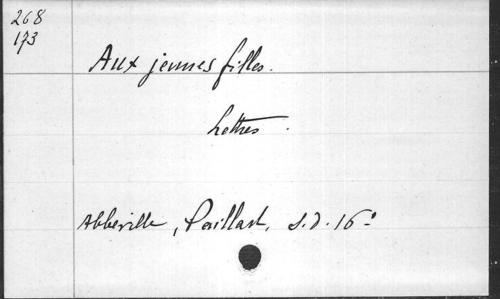 268
173
Aux jeunes filles.
Lettres.
Abbeville, Paillart, s.d. 16°